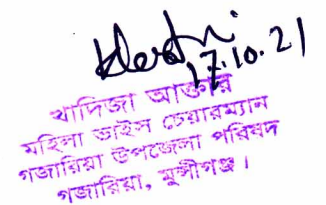 17.10.21
খাদিজা আক্তার
মহিলা ভাইস চেয়ারম্যান
গজারিয়া উপজেলা পরিষদ
গজারিয়া, মুন্সীগঞ্জ।